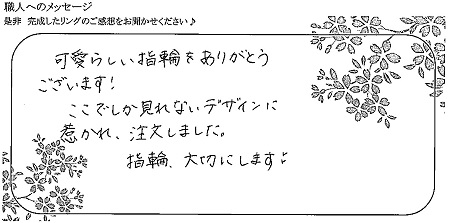 職人へのメッセージ
是非 完成したリングのご感想をお聞かせください♪
可愛らしい指輪をありがとう
ございます!
ここでしか見れないデザインに
惹かれ、注文しました。
指輪、大切にします♪